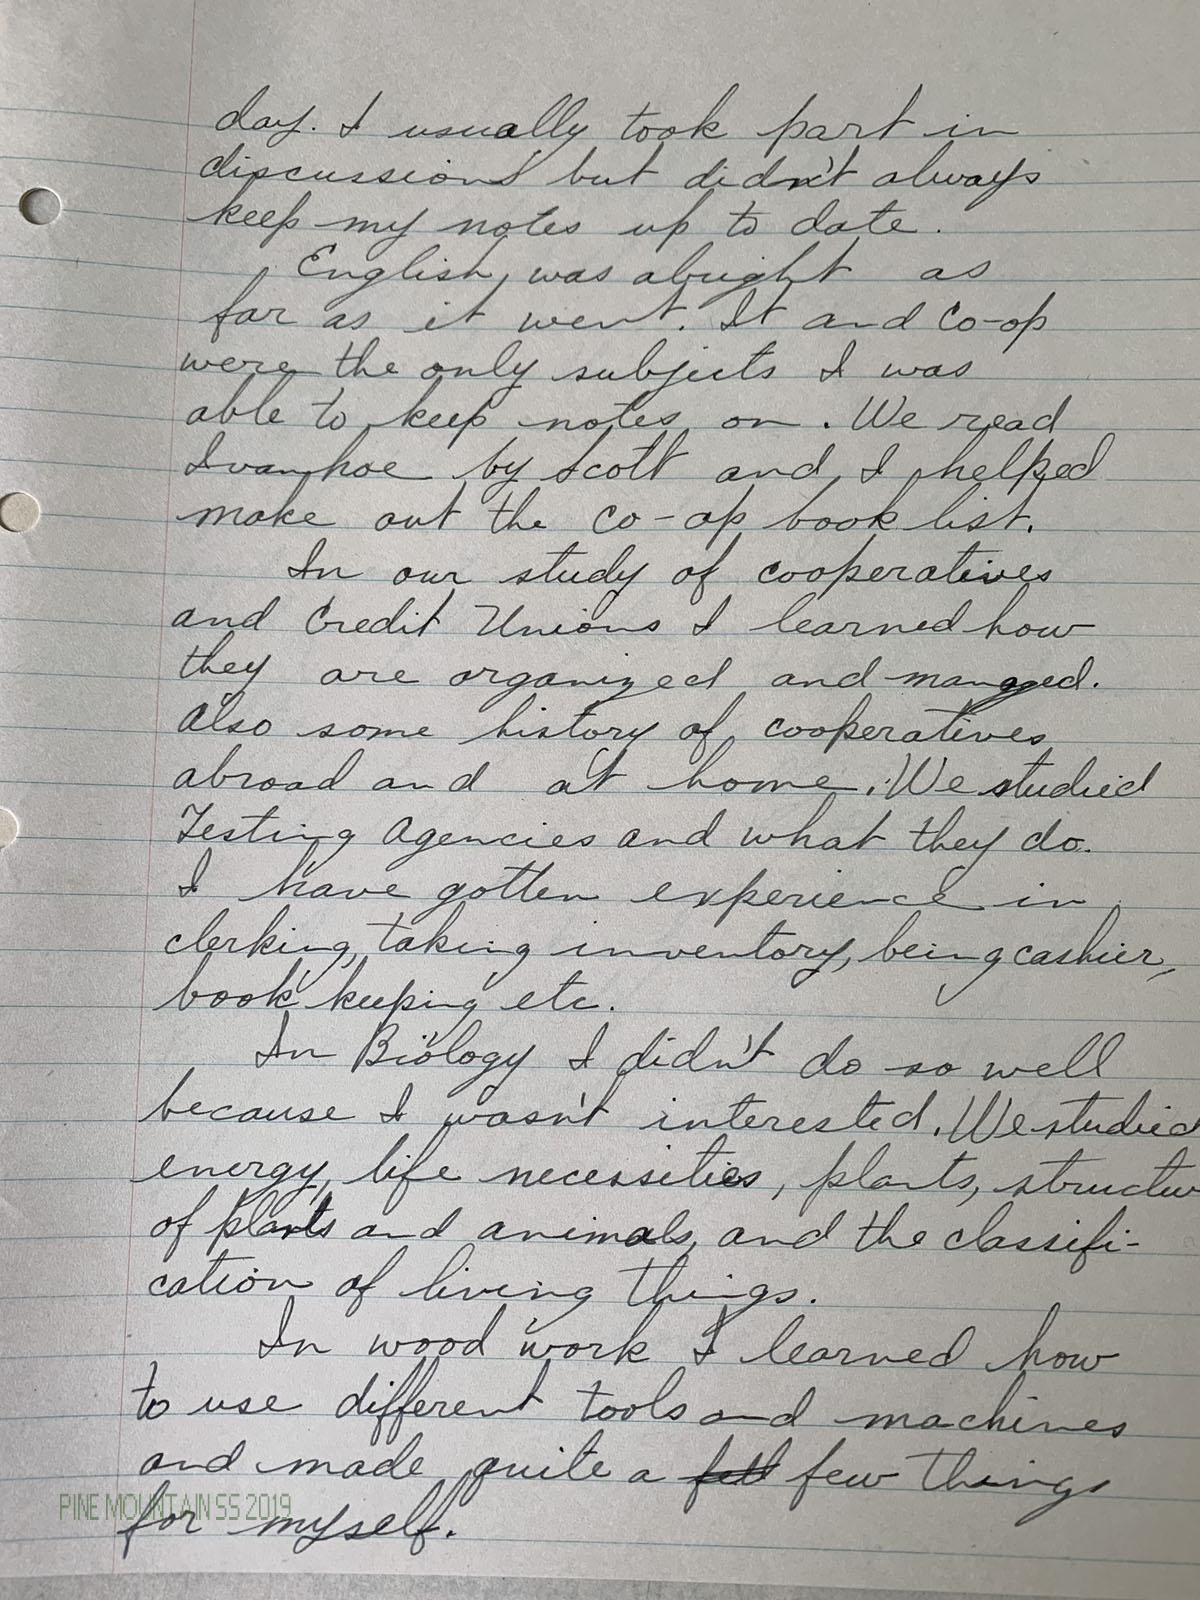 day. I usually took part in
discussions but didn't always
keep my notes up to date.
English was alright as
far as it went. It and Co-op
were the only subjects I was
able to keep notes on. We read
Ivanhoe by Scott and I helped
make out the co-op book list.
In our study of cooperatives
and Credit Unions I learned how
they are organized and managed.
Also some history of cooperatives
abroad and at home. We studied
Testing Agencies and what they do.
I have gotten experience in
clerking, taking inventory, being cashier,
book keeping etc.
In Biology I didn't do so well
because I wasn't interested. We studied
energy, life necessities, plants, structur
of plants and animals, and the classifi-
cation of living things.
In wood work I learned how
to use different tools and machines
and made quite a few things
PINE MOUNTAIN SS 2019
for myself.